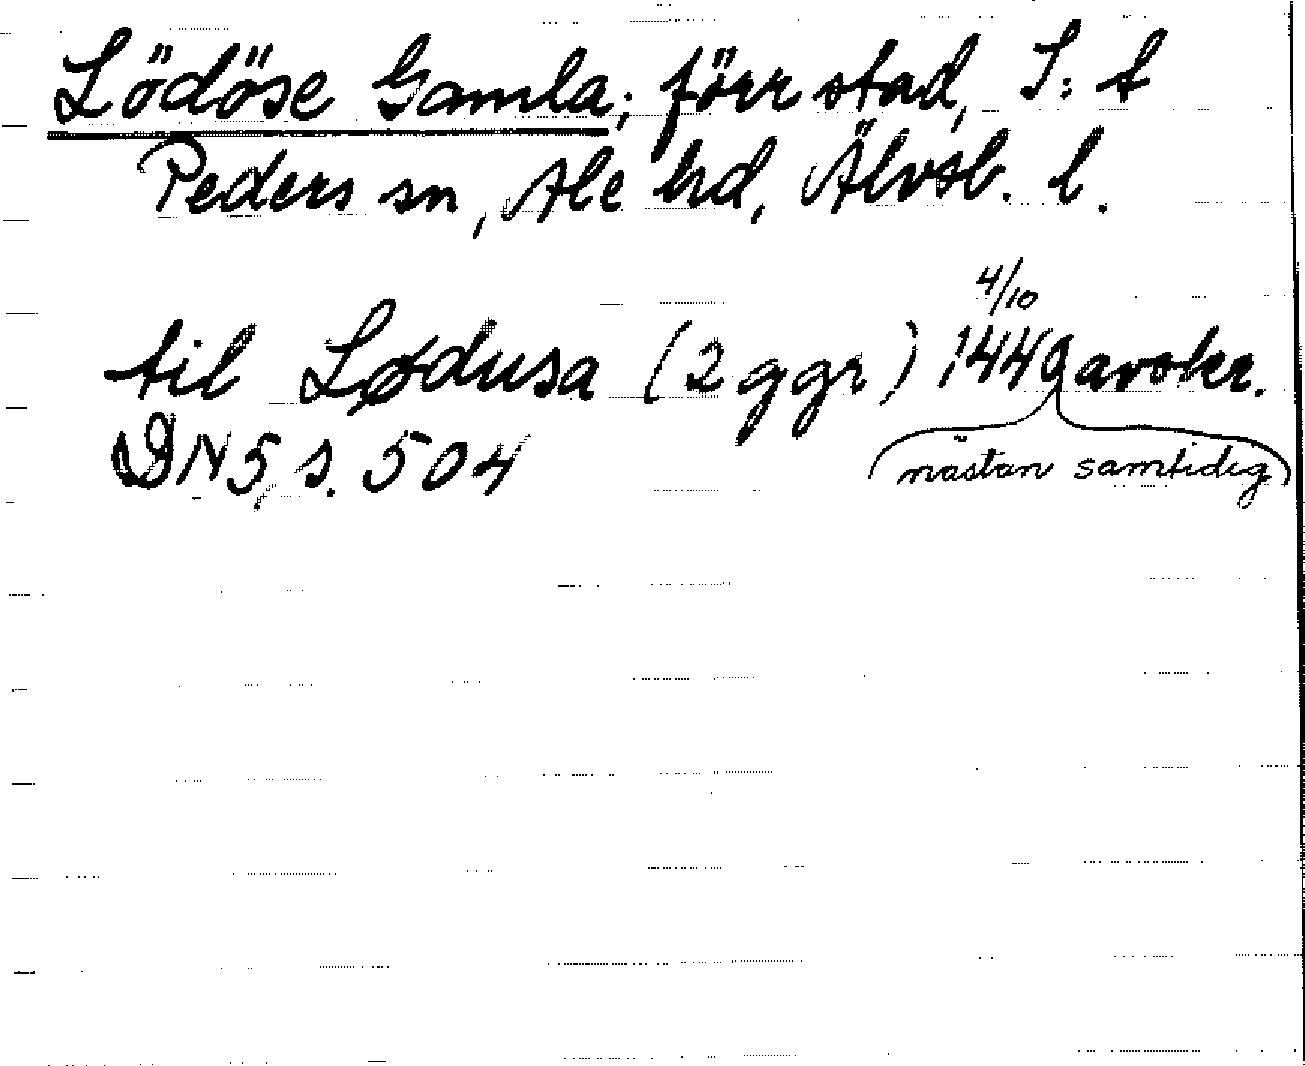 Lödöse Gamla; förr stad, S:t
Peders sn, Ale hrd, Älvsb. l.
4/10
til Lødusa (2 ggr) 1449 avskr.
DN 5, s. 504
nästan samtidig